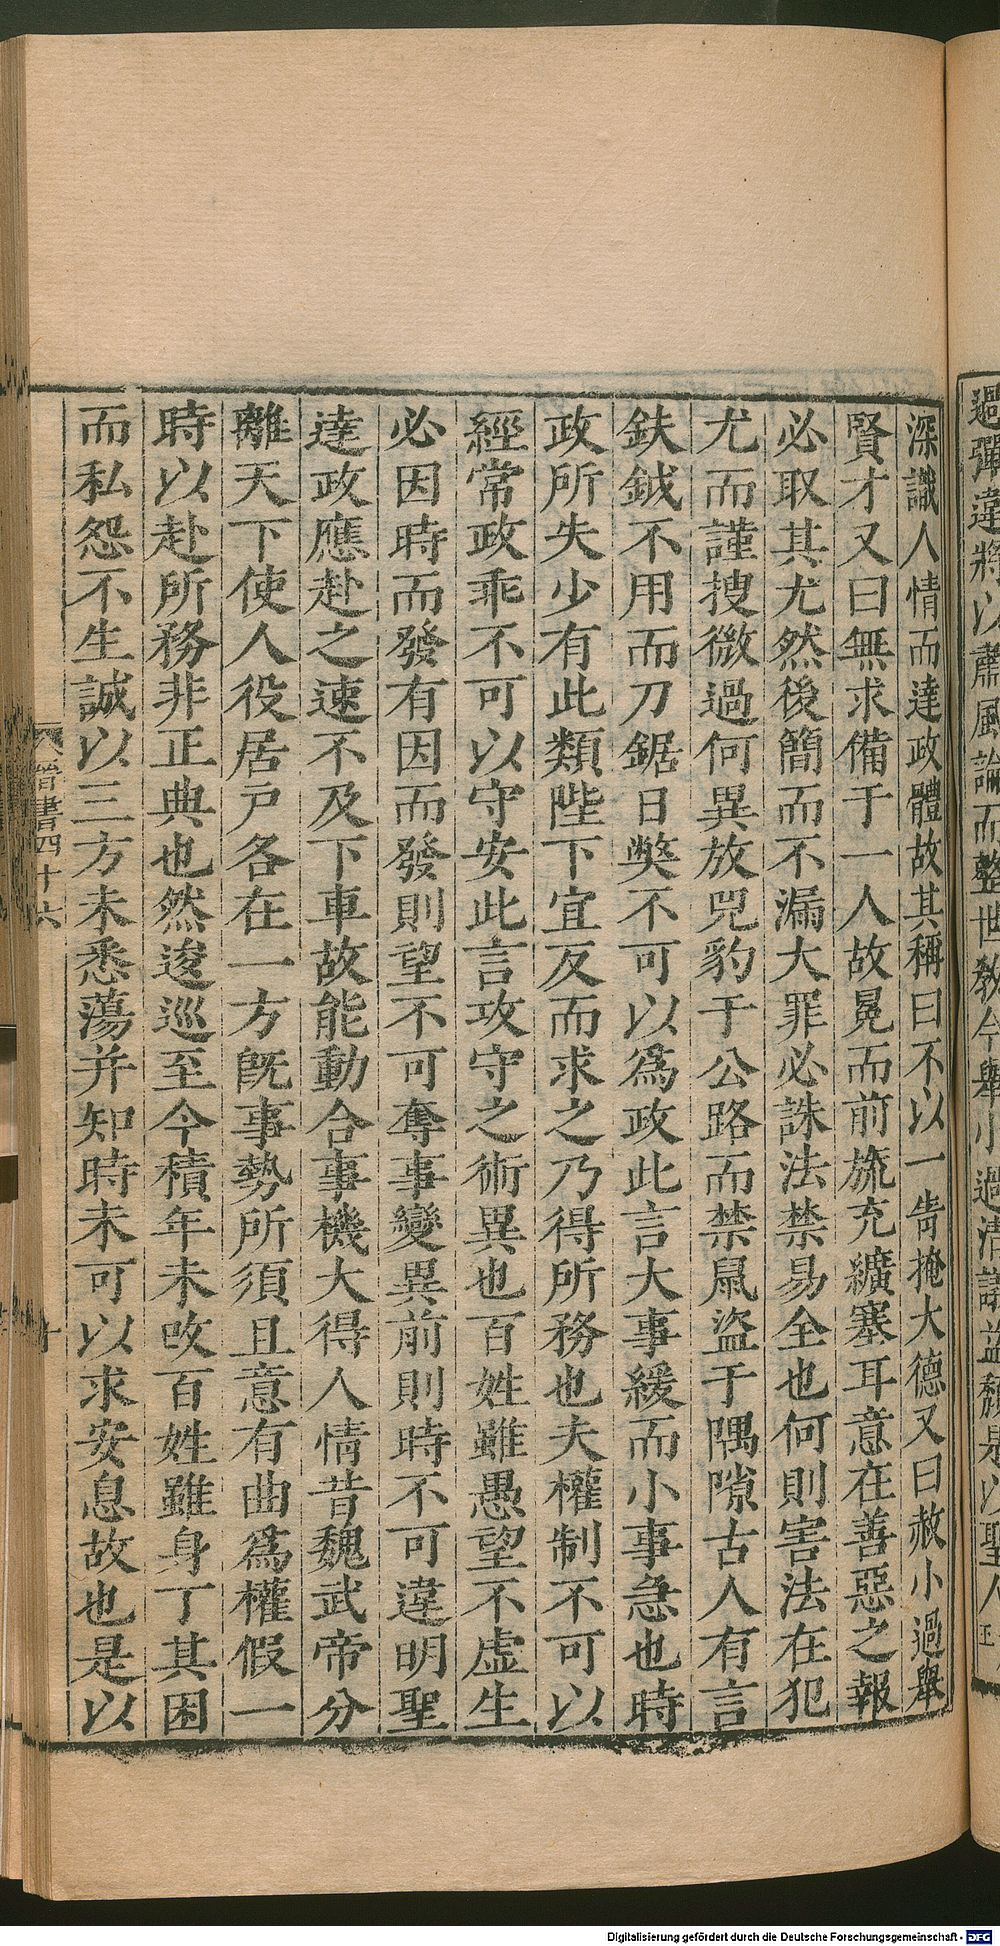 過彈違將以肅風論而整世教今舉小過清議益頹是以聖人
深識人情而達政體故其稱曰不以一眚掩大德又曰赦小過舉
賢才又曰無求備于一人故冕而前旒充纊塞耳意在善惡之報
必取其尤然後簡而不漏大罪必誅法禁易全也何則害法在犯
尤而謹搜微過何異放兕豹于公路而禁鼠盜于隅隙古人有言
鈇鉞不用而刀鋸日獘不可以爲政此言大事緩而小事急也時
政所失少有此類陛下宜反而求之乃得所務也夫權制不可以
經常政乖不可以守安此言攻守之術異也百姓雖愚望不虛生
必因時而發有因而發則望不可奪事變異前則時不可違明聖
達政應赴之速不及下車故能動合事機大得人情昔魏武帝分
離天下使人役居戸各在一方旣事勢所須且意有曲爲權假一
時以赴所務非正典也然逡巡至今積年未改百姓雖身丁其困
而私怨不生誠以三方未悉蕩并知時未可以求安息故也是以
晉書四十六
十
Digitalisierung gefördert durch die Deutsche Forschungsgemeinschaft - DFG